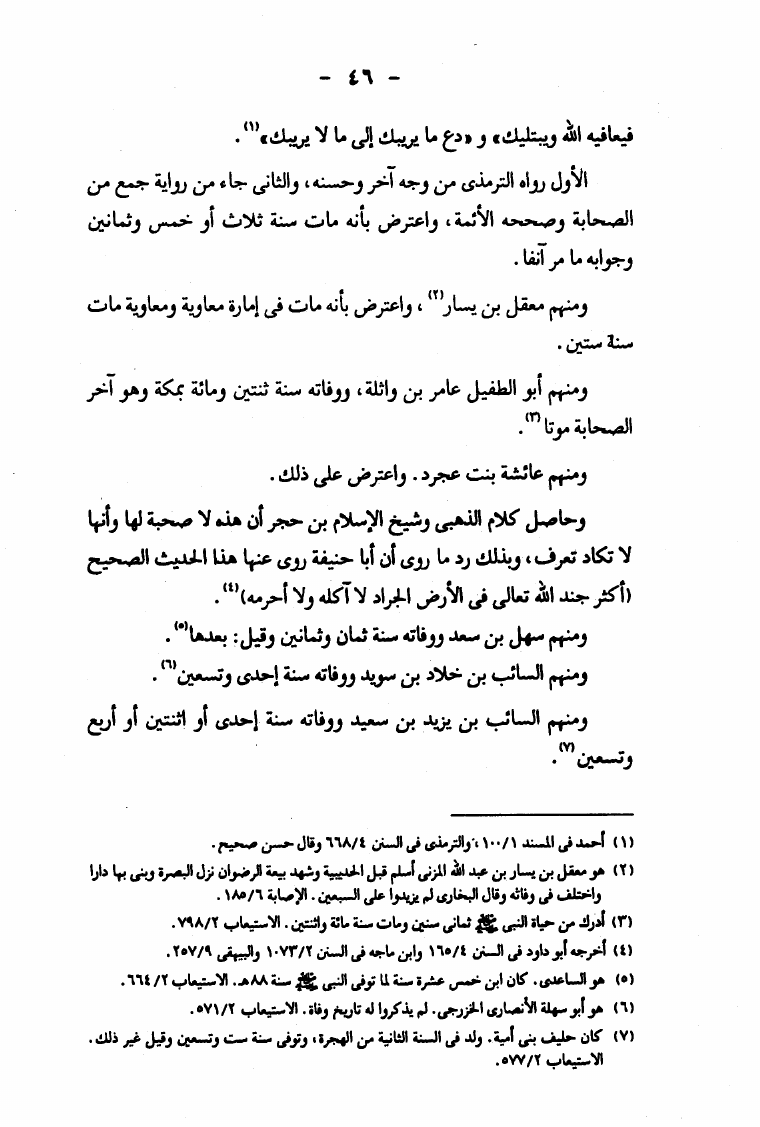 - ٤٦ -
فيعافيه الله ويبتليك» و «دع ما يريبك إلى ما لا يريبك»(١).
الأول رواه الترمذى من وجه آخر وحسنه، والثانى جاء من رواية جمع من
الصحابة وصححه الأئمة، واعترض بأنه مات سنة ثلاث أو خمس وثمانين
وجوابه ما مر آنفا.
ومنهم معقل بن يسار(٢)، واعترض بأنه مات فى إمارة معاوية ومعاوية مات
سنة ستين.
ومنهم أبو الطفيل عامر بن واثلة، ووفاته سنة ثنتين ومائة بمكة وهو آخر
الصحابة موتا(٣).
ومنهم عائشة بنت عجرد. واعترض على ذلك.
وحاصل كلام الذهبى وشيخ الإسلام بن حجر أن هذه لا صحبة لها وأنها
لا تكاد تعرف، وبذلك رد ما روى أن أبا حنيفة روى عنها هذا الحديث الصحيح
(أكثر جند الله تعالى فى الأرض الجراد لا آكله ولا أحرمه)(٤).
ومنهم سهل بن سعد ووفاته سنة ثمان وثمانين وقيل: بعدها(٥).
ومنهم السائب بن خلاد بن سويد ووفاته سنة إحدى وتسعين(٦).
ومنهم السائب بن يزيد بن سعيد ووفاته سنة إحدى أو اثنتين أو أربع
وتسعين(٧).
(١) أحمد فى المسند ١٠٠/١، والترمذى فى السنن ٦٦٨/٤ وقال حسن صحيح.
(٢) هو معقل بن يسار بن عبد الله المزنى أسلم قبل الحديبية وشهد بيعة الرضوان نزل البصرة وبنى بها دارا
واختلف فى وفاته وقال البخارى لم يزيدوا على السبعين. الإصابة ١٨٥/٦.
(٣) أدرك من حياة النبى ﷺ ثمانى سنين ومات سنة مائة واثنتين. الاستيعاب ٧٩٨/٢.
(٤) أخرجه أبو داود فى السنن ١٦٥/٤ وابن ماجه فى السنن ١٠٧٣/٢ والبيهقى ٢٥٧/٩.
(٥) هو الساعدى. كان ابن خمس عشرة سنة لما توفى النبى ﷺ سنة ٨٨هـ. الاستيعاب ٦٦٤/٢.
(٦) هو أبو سهلة الأنصارى الخزرجى. لم يذكروا له تاريخ وفاة. الاستيعاب ٥٧١/٢.
(٧) كان حليف بنى أمية. ولد فى السنة الثانية من الهجرة، وتوفى سنة ست وتسعين وقيل غير ذلك.
الاستيعاب ٥٧٧/٢.